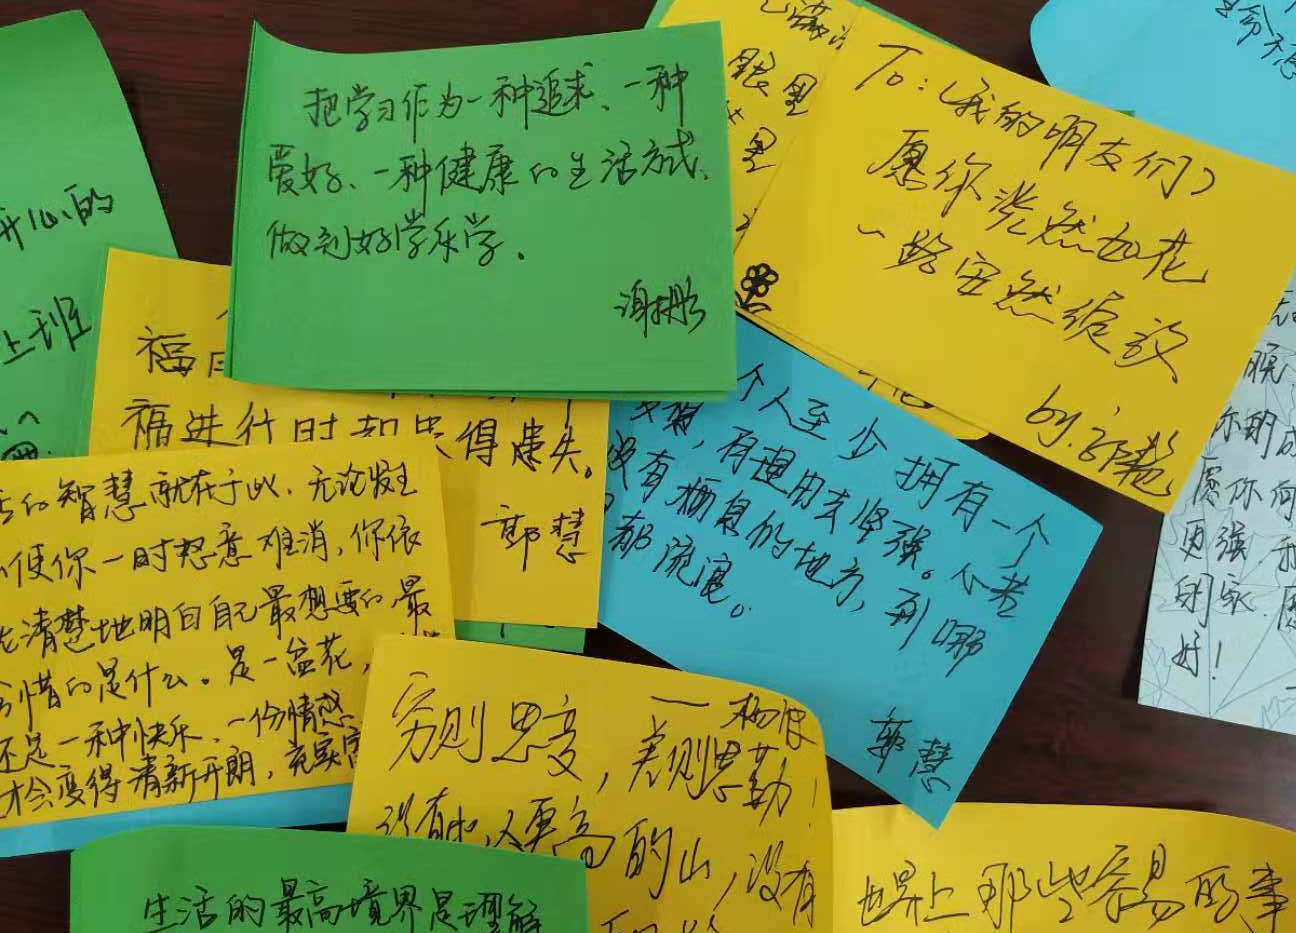 把学习作为一种追求、一种
爱好、一种健康的生活方式、
做到好学乐学。
To:(我的朋友们)
愿你淡然如花
一路安然绽放
by:
眼里
里
生命不息
开心的
上班
福
福进行时却患得患失。
郭慧
个人至少拥有一个
,有理由去坚强。心若
没有栖息的地方,到哪
都流浪。
郭慧
的智慧就在于此。无论发生
使你一时怒意难消,你依
清楚地明白自己最想要的、最
惜的是什么。是一盆花,
还是一种快乐、一份情感
才会变得清新开朗,充实
穷则思变,差则思勤!
没有比人更高的山,没有
生活的最高境界是理解
世界上那些容易的事
你的成
愿你何
更强
好!